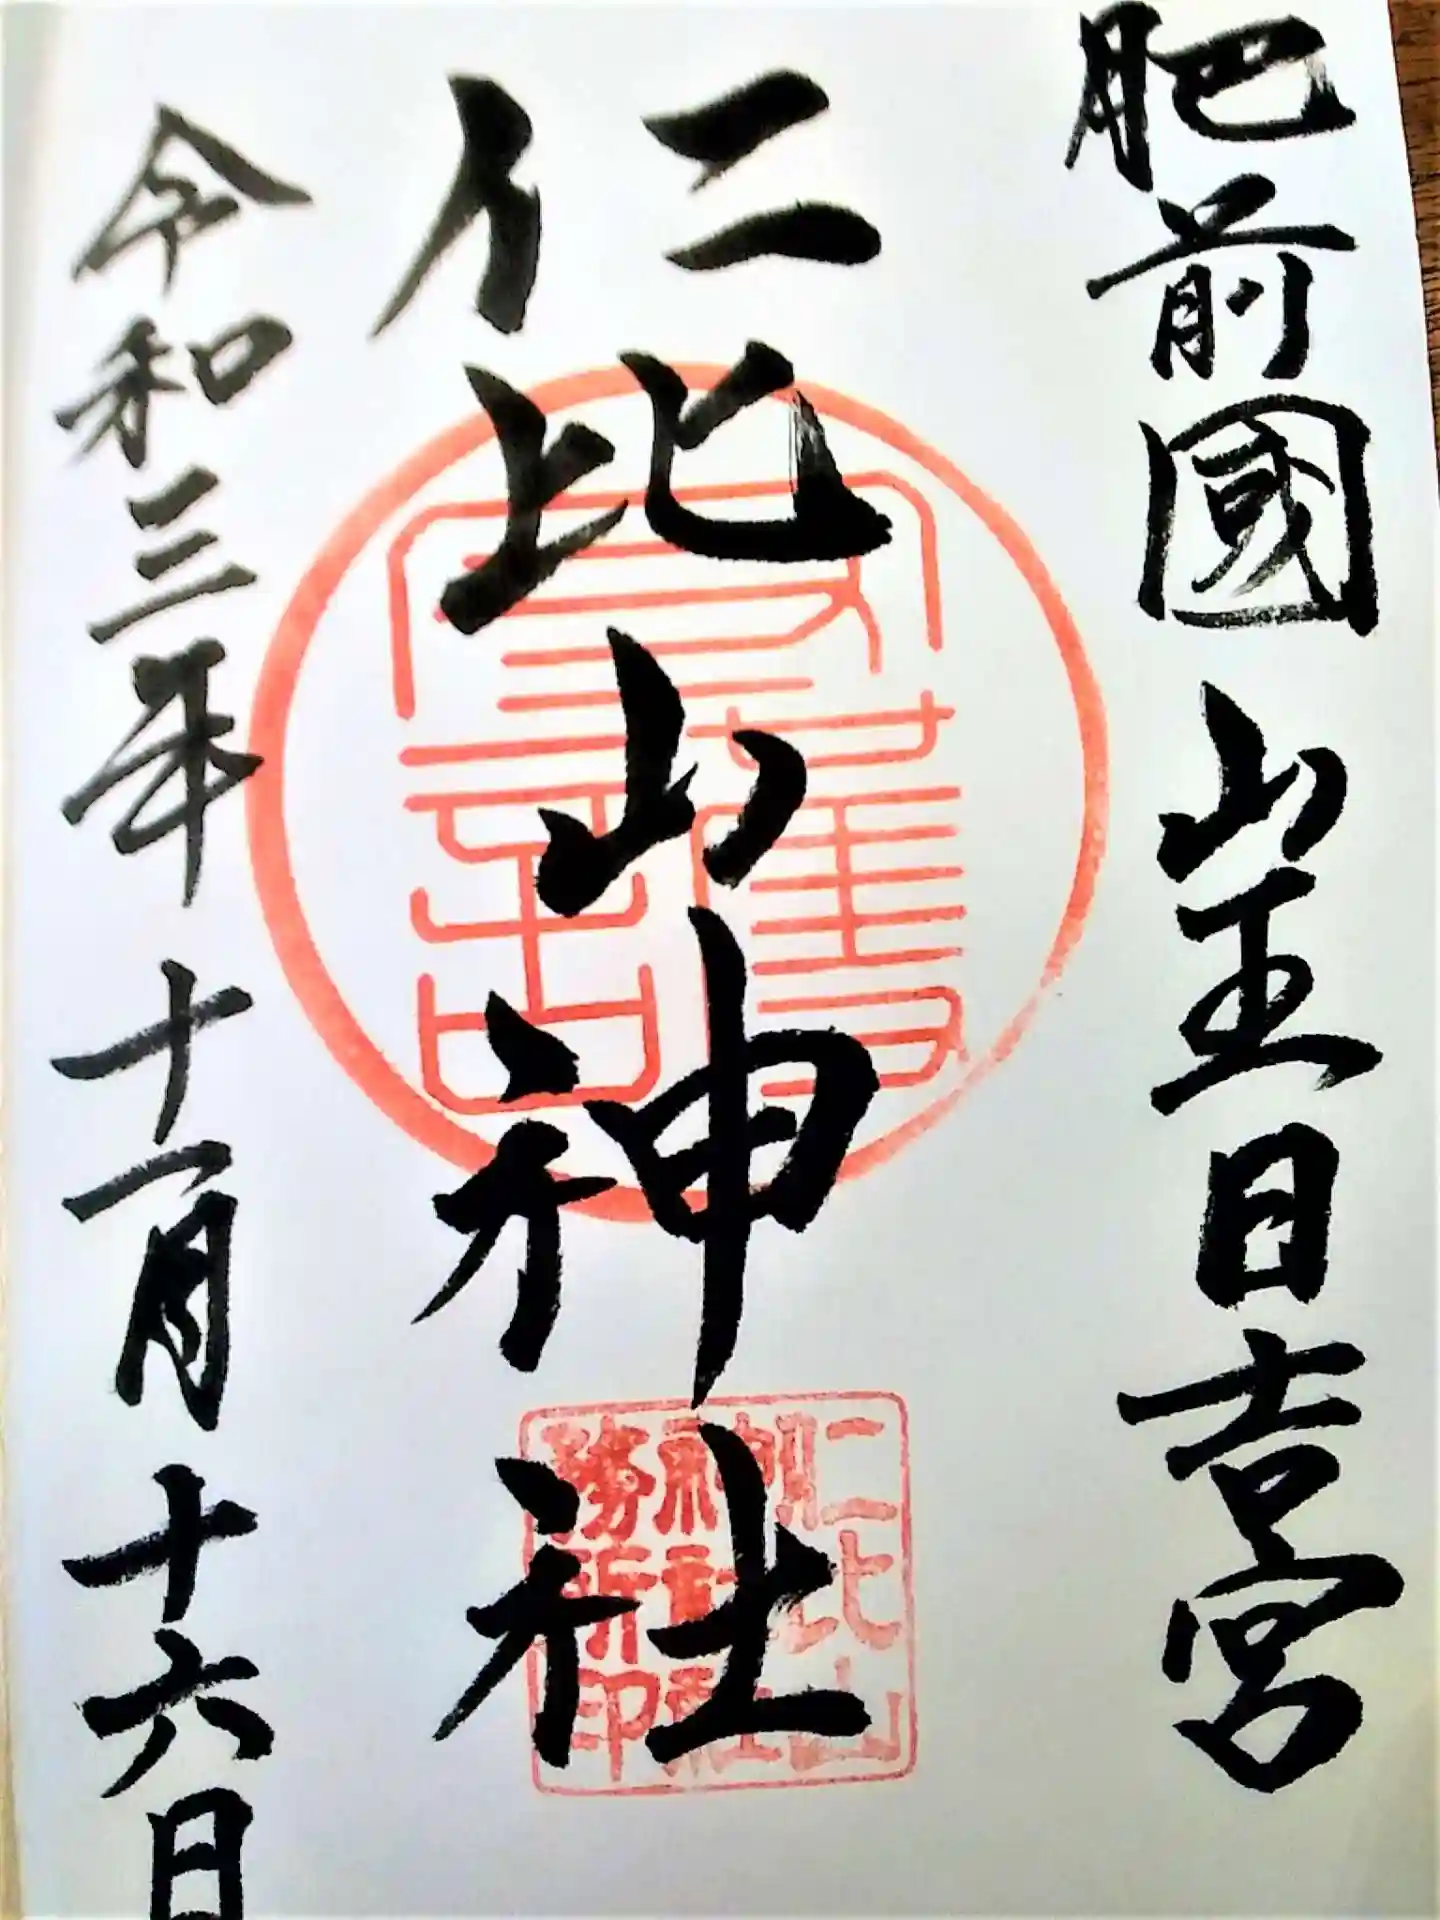 肥前國 山王日吉宮
仁比山神社
仁比山
神社社
務所印
令和三年 十一月 十六日